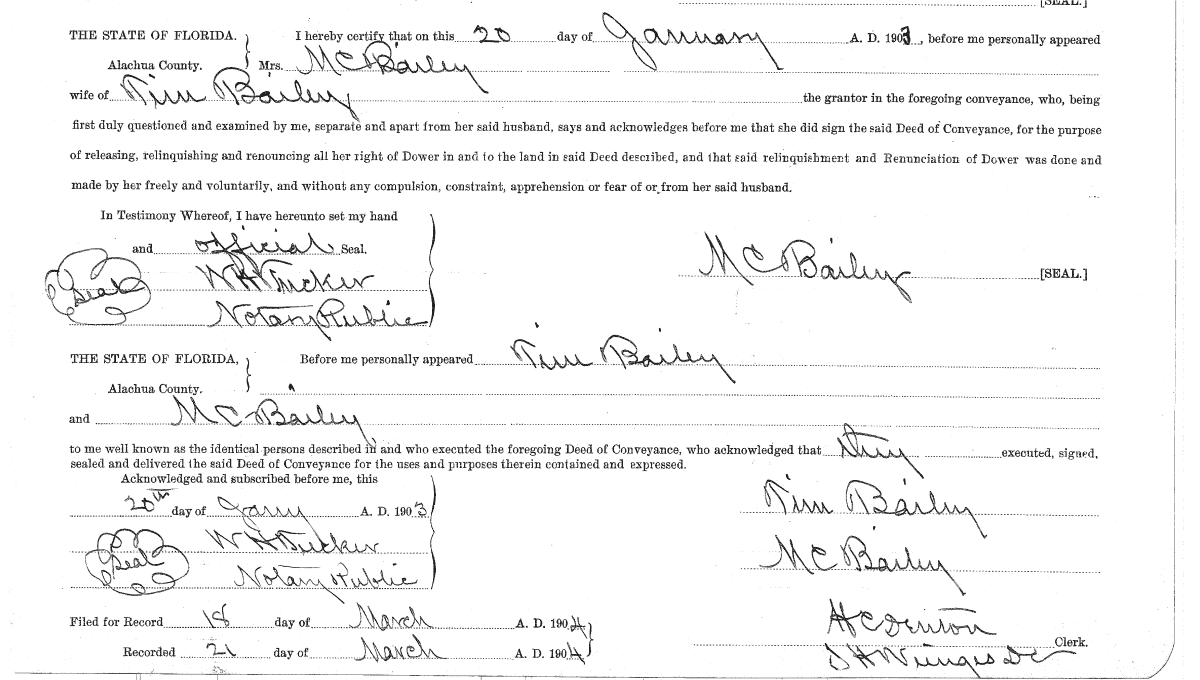 [SEAL.]
THE STATE OF FLORIDA. I hereby certify that on this 20 day of January A. D. 1903, before me personally appeared
Alachua County. Mrs. M C Bailey
wife of Tim Bailey the grantor in the foregoing conveyance, who, being
first duly questioned and examined by me, separate and apart from her said husband, says and acknowledges before me that she did sign the said Deed of Conveyance, for the purpose
of releasing, relinquishing and renouncing all her right of Dower in and to the land in said Deed described, and that said relinquishment and Renunciation of Dower was done and
made by her freely and voluntarily, and without any compulsion, constraint, apprehension or fear of or from her said husband.
In Testimony Whereof, I have hereunto set my hand
and official Seal.
M C Bailey [SEAL.]
Seal W H Tucker
Notary Public
THE STATE OF FLORIDA, Before me personally appeared Tim Bailey
Alachua County.
and M C Bailey
to me well known as the identical persons described in and who executed the foregoing Deed of Conveyance, who acknowledged that they executed, signed,
sealed and delivered the said Deed of Conveyance for the uses and purposes therein contained and expressed.
Acknowledged and subscribed before me, this
20th day of Jany A. D. 1903
Tim Bailey
Seal W H Tucker
M C Bailey
Notary Public
Filed for Record 18 day of March A. D. 1904
H C Denton Clerk.
Recorded 21 day of March A. D. 1904
D C